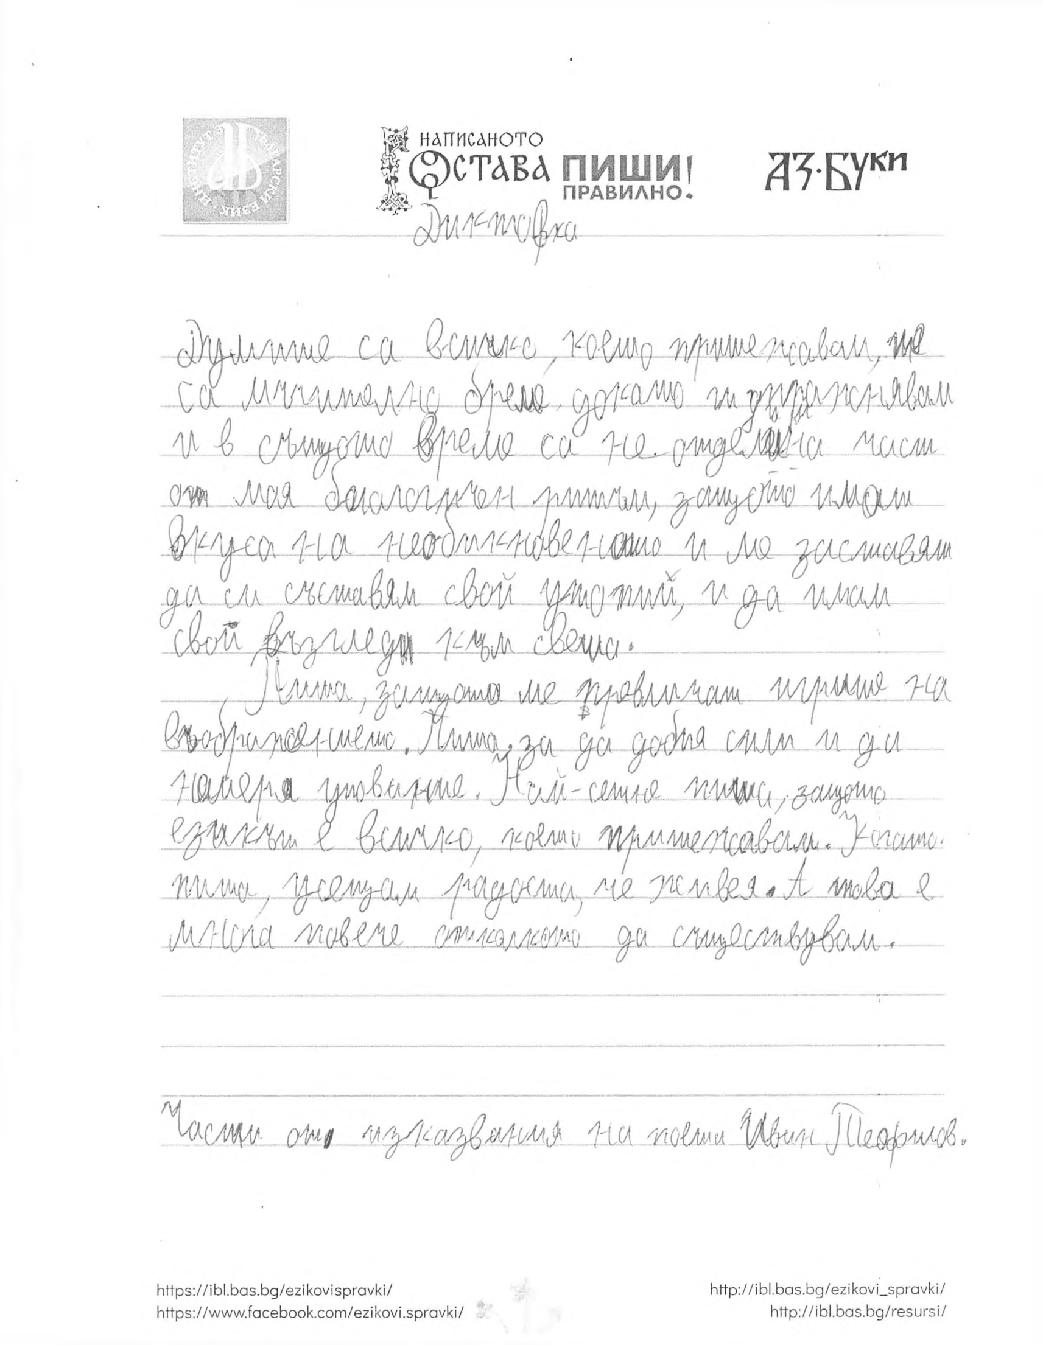 ИНСТИТУТ ЗА БЪЛГАРСКИ ЕЗИК
НАПИСАНОТО
ОСТАВА ПИШИ!
ПРАВИЛНО.
АЗ·БУКИ
Диктовка
Думите са всичко, което притежавам, те
са мъчително бреме, докато ги упражнявам
и в същото време са не отделна част
от мая биологичен ритъм, защото имат
вкуса на необикновеното и ме заставят
да си съставям свой утопий, и да имам
свой възгледи към света.
Пиша, защото ме превличат игрите на
въображението. Пиша, за да добия сили и да
намеря упование. Най-сетне пиша, защото
езикът е всичко, което притежавам. Когато
пиша, усещам радоста, че живея. А това е
много повече отколкото да съществувам.
Части от изказвания на поета Иван Теофилов.
https://ibl.bas.bg/ezikovispravki/ http://ibl.bas.bg/ezikovi_spravki/
https://www.facebook.com/ezikovi.spravki/ http://ibl.bas.bg/resursi/